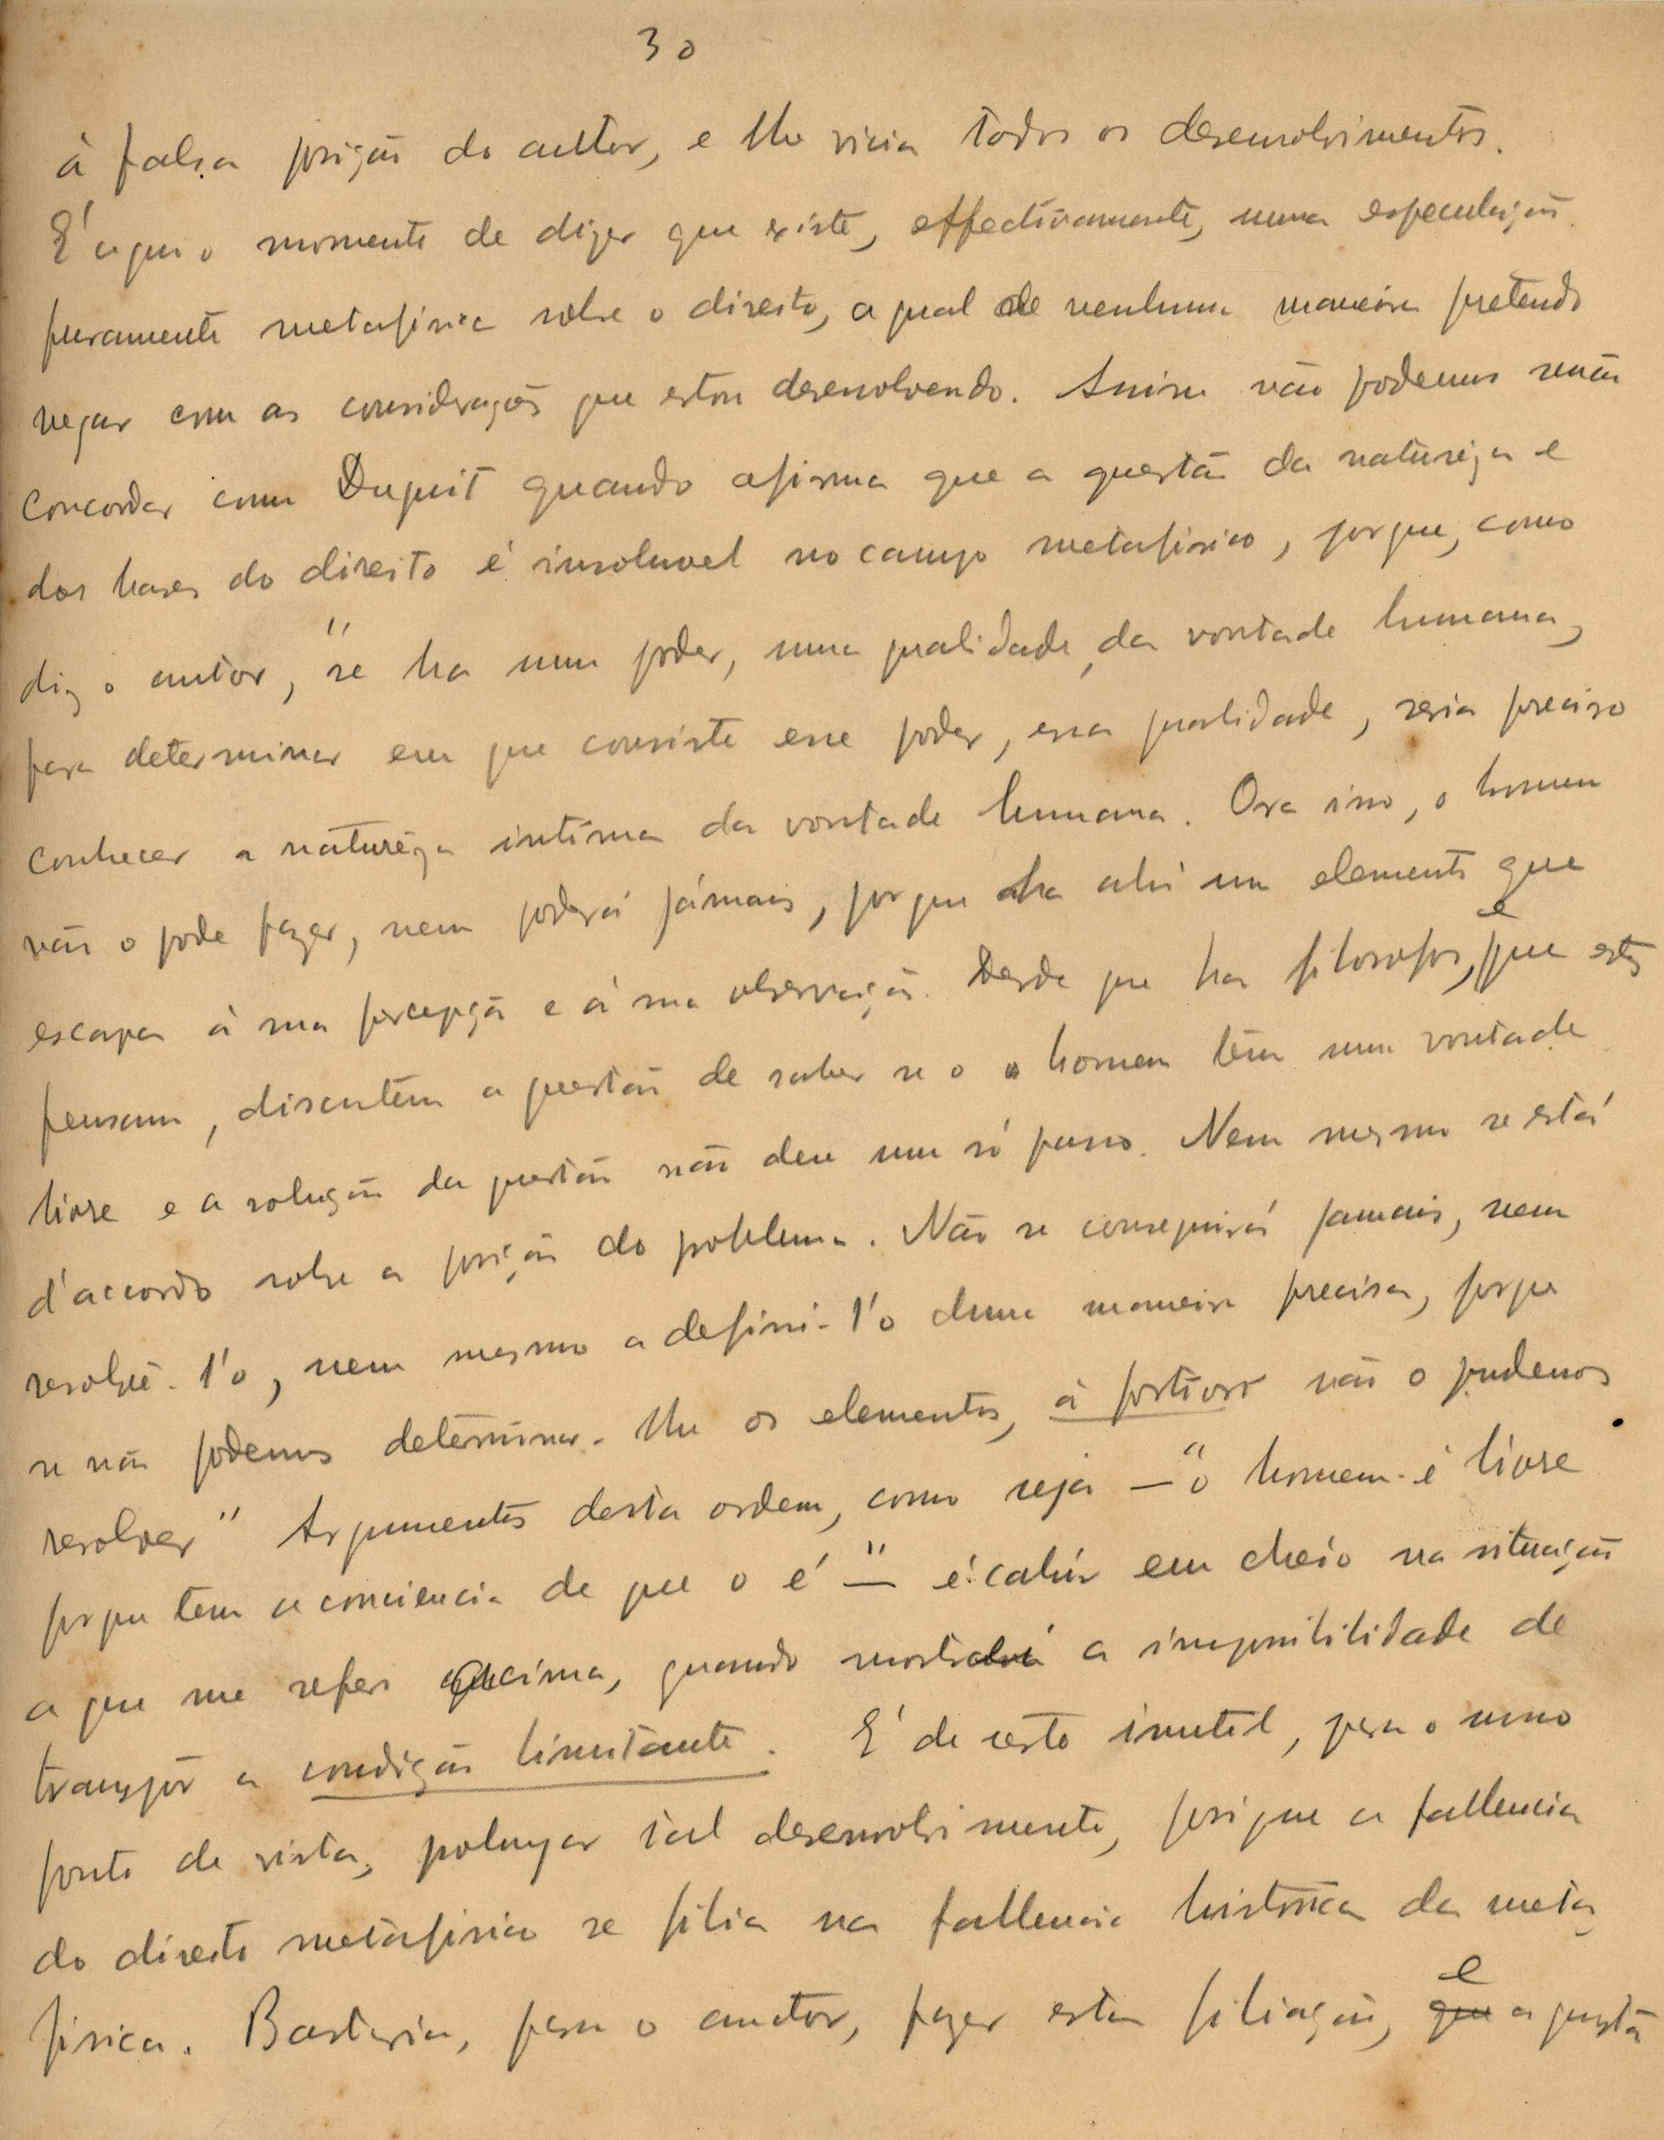 30
á falsa posição do auctor, e lhe vicia todos os desenvolvimentos.
E' aqui o momento de dizer que existe, effectivamente, uma especulação
puramente metafisica sobre o direito, a qual de nenhuma maneira pretendo
negar com as considerações que estou desenvolvendo. Assim não podemos senão
concordar com Duguit quando afirma que a questão da natureza e
das bases do direito é insoluvel no campo metafisico, porque, como
diz o autor, "se ha um poder, uma qualidade da vontade humana,
para determinar em que consiste esse poder, essa qualidade, seria preciso
conhecer a natureza intima da vontade humana. Ora isso, o homem
não o pode fazer, nem poderá jámais, porque ha ahi um elemento que
escapa á sua percepção e á sua observação. Desde que ha filosofos, e que estes
pensam, discutem a questão de saber se o homem tem uma vontade
livre e a solução da questão não deu um só passo. Nem mesmo se está
d'accordo sobre a posição do problema. Não se conseguirá jamais, nem
resolvê-l'o, nem mesmo a defini-l'o duma maneira precisa, porque
se não podemos determinar-lhe os elementos, á fortiori não o pudemos
resolver" Argumentos desta ordem, como seja — "o homem é livre
porque tem a conciencia de que o é" — é cahir em cheio na situação
a que me referi acima, quando mostrei a impossibilidade de
transpôr a condição limitante. E' de certo inutil, para o nosso
ponto de vista, polongar tal desenvolvimento, posi que a fallencia
do direito metafisico se filia na fallencia historica da meta
fisica. Bastaria, para o auctor, fazer esta filiação, e a questã